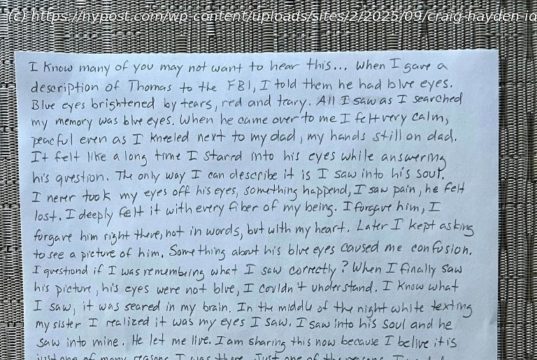 (c) https://nypost.com/wp-content/uploads/sites/2/2025/09/craig-hayden-id
I know many of you may not want to hear this... When I gave a
description of Thomas to the FBI, I told them he had blue eyes.
Blue eyes brightened by tears, red and teary. All I saw as I searched
my memory was blue eyes. When he came over to me I felt very calm,
peaceful even as I kneeled next to my dad, my hands still on dad.
It felt like a long time I stared into his eyes while answering
his question. The only way I can describe it is I saw into his soul.
I never took my eyes off his eyes, something happend, I saw pain, he felt
lost. I deeply felt it with every fiber of my being. I forgave him, I
forgave him right there, not in words, but with my heart. Later I kept asking
to see a picture of him. Something about his blue eyes caused me confusion.
I questiond if I was remembering what I saw correctly? When I finally saw
his picture, his eyes were not blue, I couldn't understand. I know what
I saw, it was seared in my brain. In the middle of the night while texting
my sister I realized it was my eyes I saw. I saw into his soul and he
saw into mine. He let me live. I am sharing this now because I belive it is
just one of many reasons I was there. Just one of the